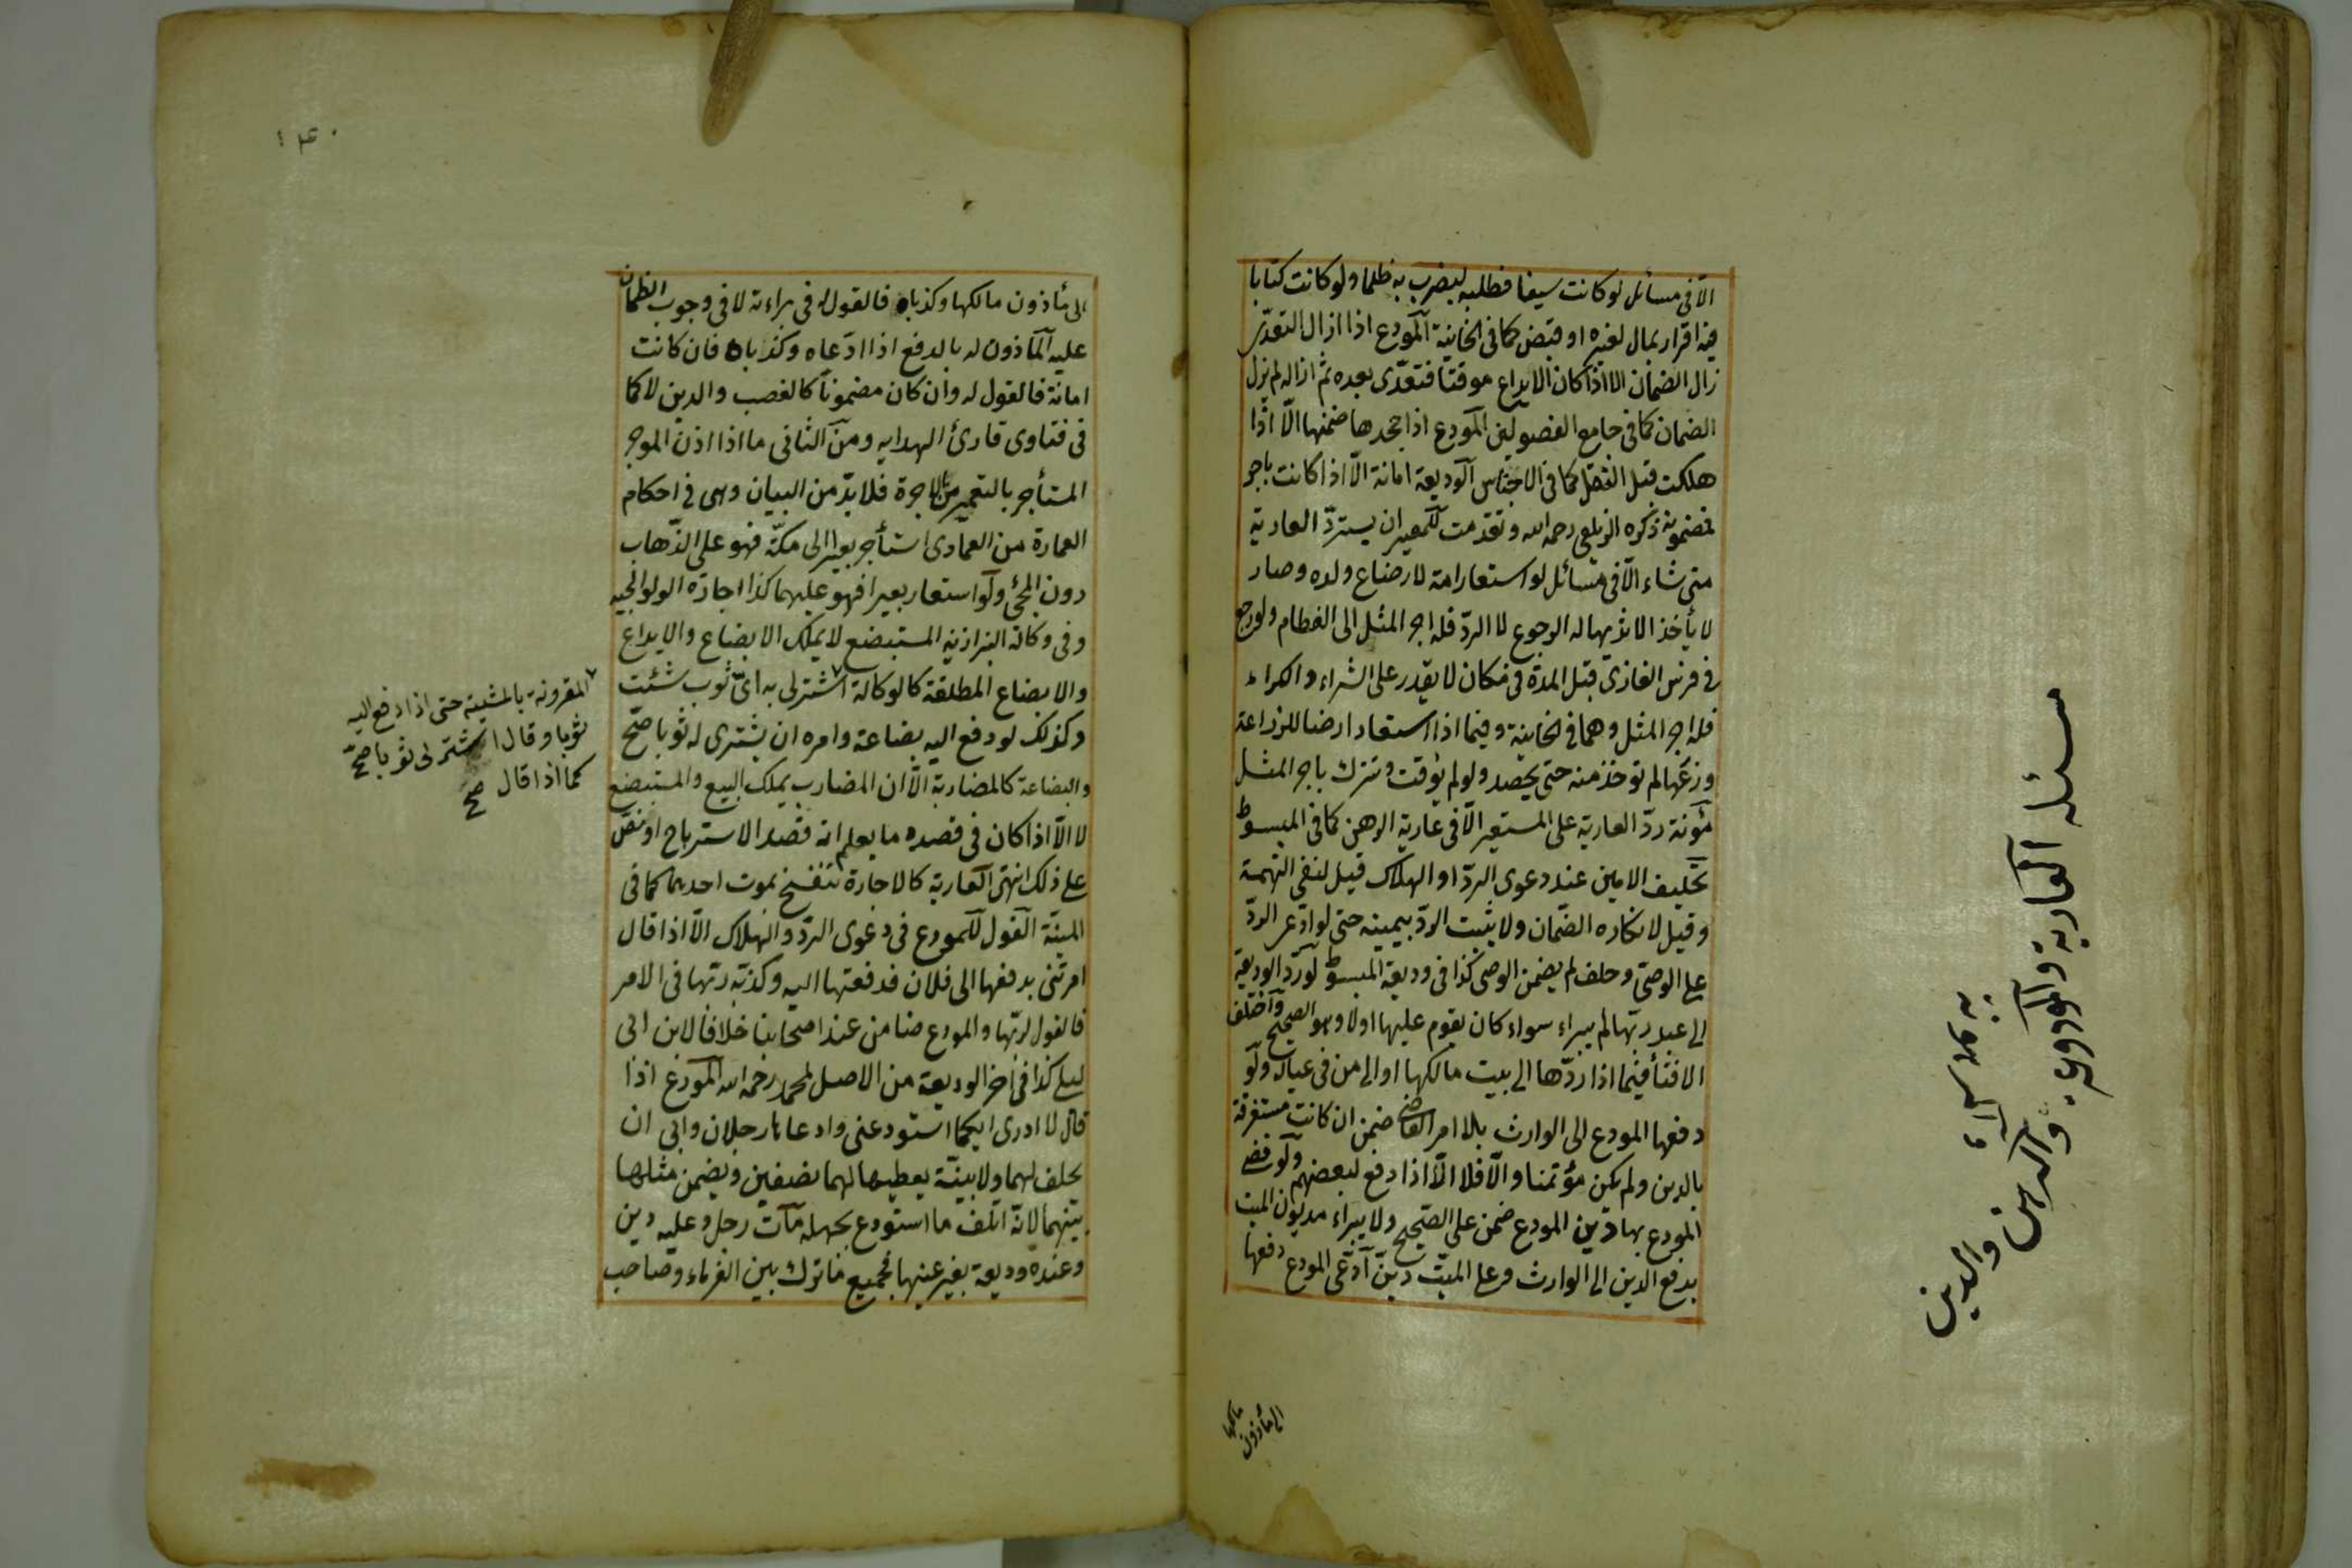 الّا فى مسائل لو كانت سيفا فطلبه ليضرب به ظلما ولو كانت كتابا
فيه اقرار بمال لغيره او قبض كما فى الخانية المودع اذا ازال التعدّى
زال الضمان الا اذا كان الايداع موقتا فتعدّى بعده ثم ازاله لم يزل
الضمان كما فى جامع الفصولين المودع اذا جحدها ضمنها الّا اذا
هلكت قبل النقل كما فى الاجناس الوديعة امانة الّا اذا كانت باجر
فمضمونة ذكره الزيلعى رحمه الله وتقدمت للمعير ان يستردّ العارية
متى شاء الّا فى مسائل لو استعار امة لارضاع ولده وصار
لا يأخذ الا ثديها له الرجوع لا الردّ فله اجر المثل الى الفطام ولو رجع
فى فرس الغازى قبل المدة فى مكان لا يقدر على الشراء والكراء
فله اجر المثل وهما فى الخانية وفيما اذا استعار ارضا للزراعة
وزرعها لم تؤخذ منه حتى يحصد ولو لم يؤقت وتترك باجر المثل
مؤنة ردّ العارية على المستعير الّا فى عارية الرهن كما فى المبسوط
تحليف الامين عند دعوى الردّ او الهلاك قيل لنفى التهمة
وقيل لانكاره الضّمان ولا يثبت الردّ بيمينه حتى لو ادعى الردّ
على الوصىّ وحلف لم يضمن الوصى كذا فى وديعة المبسوط لو ردّ الوديعة
الى عبد ربّها لم يبراء سواء كان يقوم عليها اولا وهو الصحيح واختلف
الافتأ فيما اذا ردّها الى بيت مالكها او الى من فى عياله ولو
دفعها المودع الى الوارث بلا امر القاضى ضمن ان كانت مستغرقة
بالدين ولم يكن مؤتمنا والّا فلا الّا اذا دفع لبعضهم ولو قضى
المودع بها دين المودع ضمن على الصّحيح ولا يبراء مديون الميت
بدفع الدين الى الوارث وعلى الميّت دين ادّعى المودع دفعها
الى مأذون مالكها
مسئله العارية والوديعة والرهن والدين
الى مأذون مالكها وكذباه فالقول له فى براءته لا فى وجوب الضمان
عليه المأذون له بالدفع اذا ادّعاه وكذباه فان كانت
امانة فالقول له وان كان مضمونا كالغصب والدين لا كما
فى فتاوى قارئ الهدايه ومن الثانى ما اذا اذن الموجر
المستأجر بالتعمير من الاجرة فلا بدّ من البيان وهى فى احكام
العمارة من العمادى استأجر بعيرا الى مكّة فهو على الذّهاب
دون المجئ ولو استعار بعيرا فهو عليهما كذا اجارة الولوالجيه
وفى وكالة البزازيه المستبضع لا يملك الابضاع والايداع
والابضاع المطلقة كالوكالة اشتر لى به اىّ ثوب شئت
وكذلك لو دفع اليه بضاعة وامره ان يشترى له ثوبا صّح
والبضاعة كالمضاربة الّا ان المضارب يملك البيع والمستبضع
لا الّا اذا كان فى قصده ما يعلم انه قصد الاسترباح او نصّ
على ذلك انتهى العارية كالاجارة تنفسخ بموت احدهما كما فى
المنية القول للمودع فى دعوى الردّ والهلاك الّا اذا قال
امرتنى بدفعها الى فلان فدفعتها اليه وكذبّه ربّها فى الامر
فالقول لربّها والمودع ضامن عند اصحابنا خلافا لابن ابى
ليلى كذا فى اخر الوديعة من الاصل لمحمد رحمه الله المودع اذا
قال لا ادرى ايكما استودعنى وادعاها رجلان وابى ان
يحلف لهما ولا بيّنة يعطيها لهما نصفين ويضمن مثلها
بينهما لانّه اتلف ما استودع بجهله مات رجل وعليه دين
وعنده وديعة بغير عينها فجميع ما ترك بين الغرماء وصاحب
المقرونة بالمشيئة حتى اذا دفع اليه
ثوبا وقال اشتر لى ثوبا صحّ
كما اذا قال صح